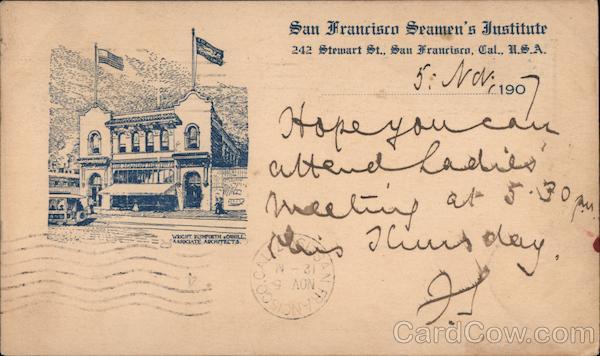 San Francisco Seamen's Institute
242 Stewart St., San Francisco, Cal., U.S.A.
5. Nov. 1907
Hope you can
attend Ladies'
meeting at 5.30 p.m.
this Thursday.
WRIGHT, RUSHFORTH & CAHILL
ASSOCIATE ARCHITECTS.
SAN FRANCISCO, CAL.
NOV 5
12 - M
CardCow.com